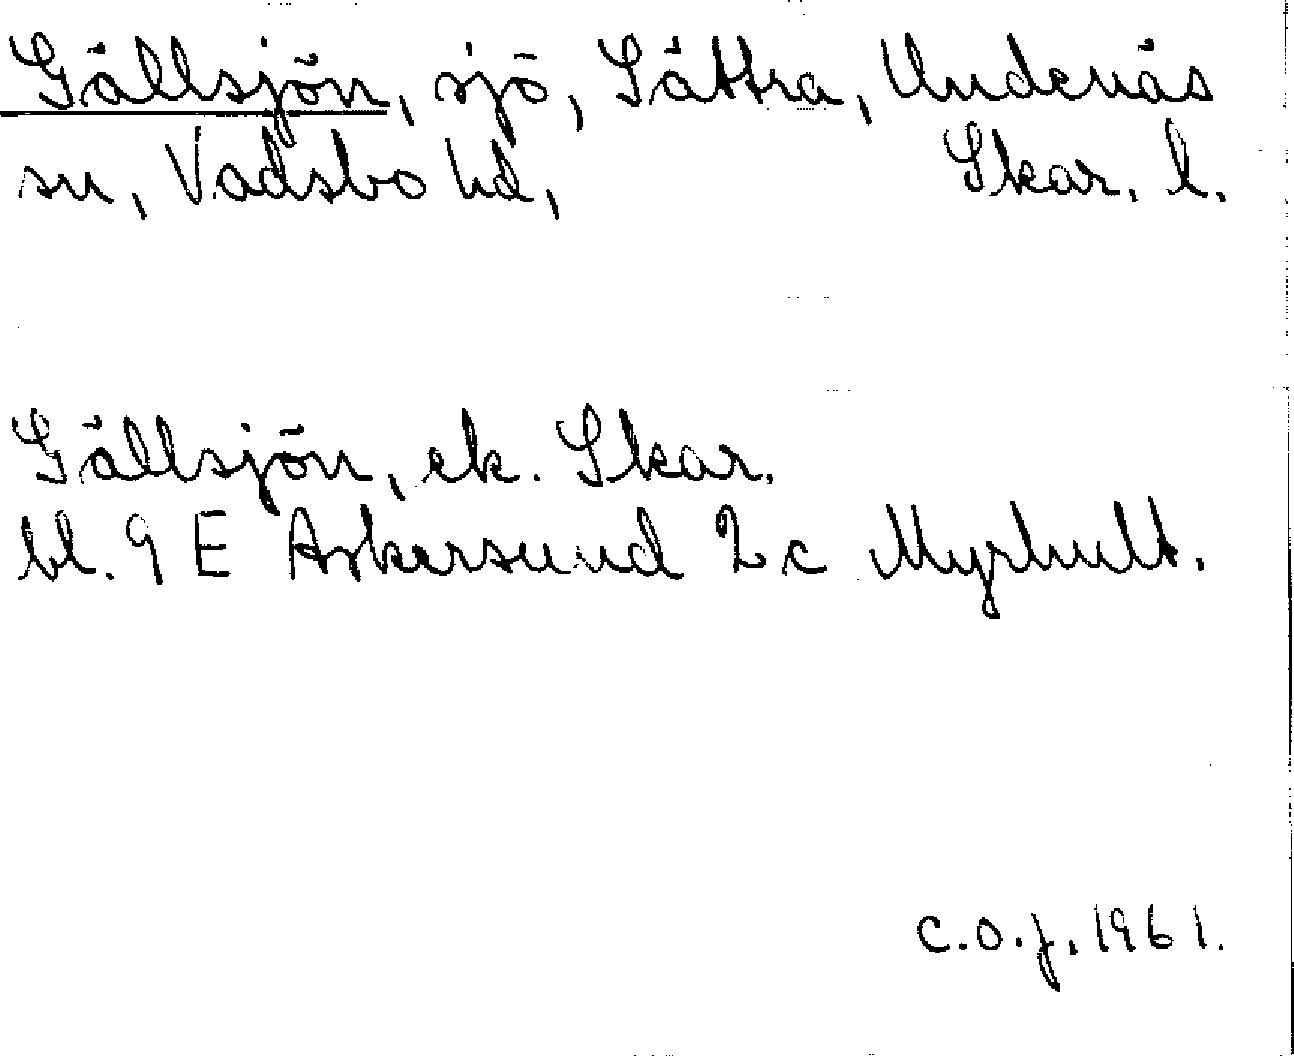 Gällsjön, sjö, Sätra, Undenäs
sn, Vadsbo hd, Skar. l.
Gällsjön, ek. Skar.
bl. 9 E Askersund 2 c Myrhult.
C.O.J. 1961.